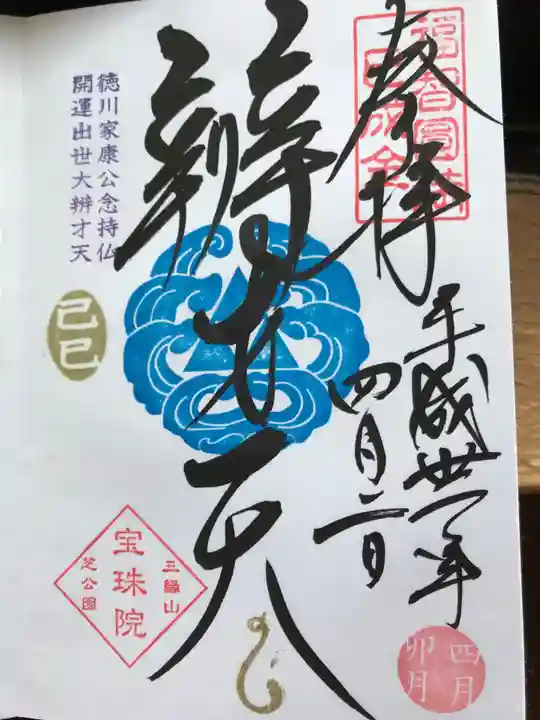 奉拝
福智圓満
巳成金
平成卅一年
四月二日
辨才天
徳川家康公念持仏
開運出世大辨才天
己巳
三縁山
宝珠院
芝公園
四月
卯月